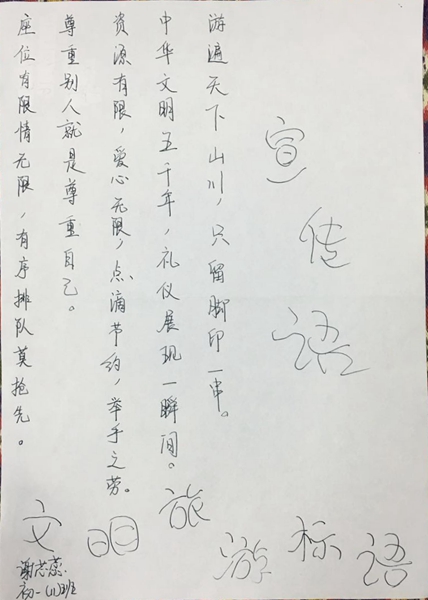 宣传语
游遍天下山川，只留脚印一串。
中华文明五千年，礼仪展现一瞬间。
资源有限，爱心无限，点滴节约，举手之劳。
尊重别人就是尊重自己。
座位有限情无限，有序排队莫抢先。
文明旅游标语
谢芯蕊
初一(11)班